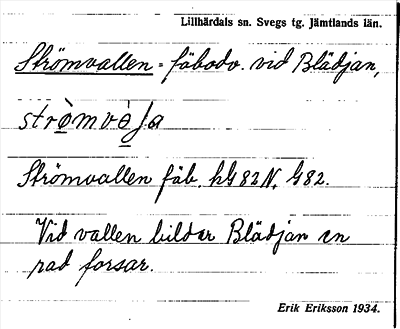 Lillhärdals sn. Svegs tg. Jämtlands län.
Strömvallen - fäbodv. vid Blädjan,
Strömvallen fäb. hG 82 N. G 82.
Vid vallen bildar Blädjan en
rad forsar.
Erik Eriksson 1934.